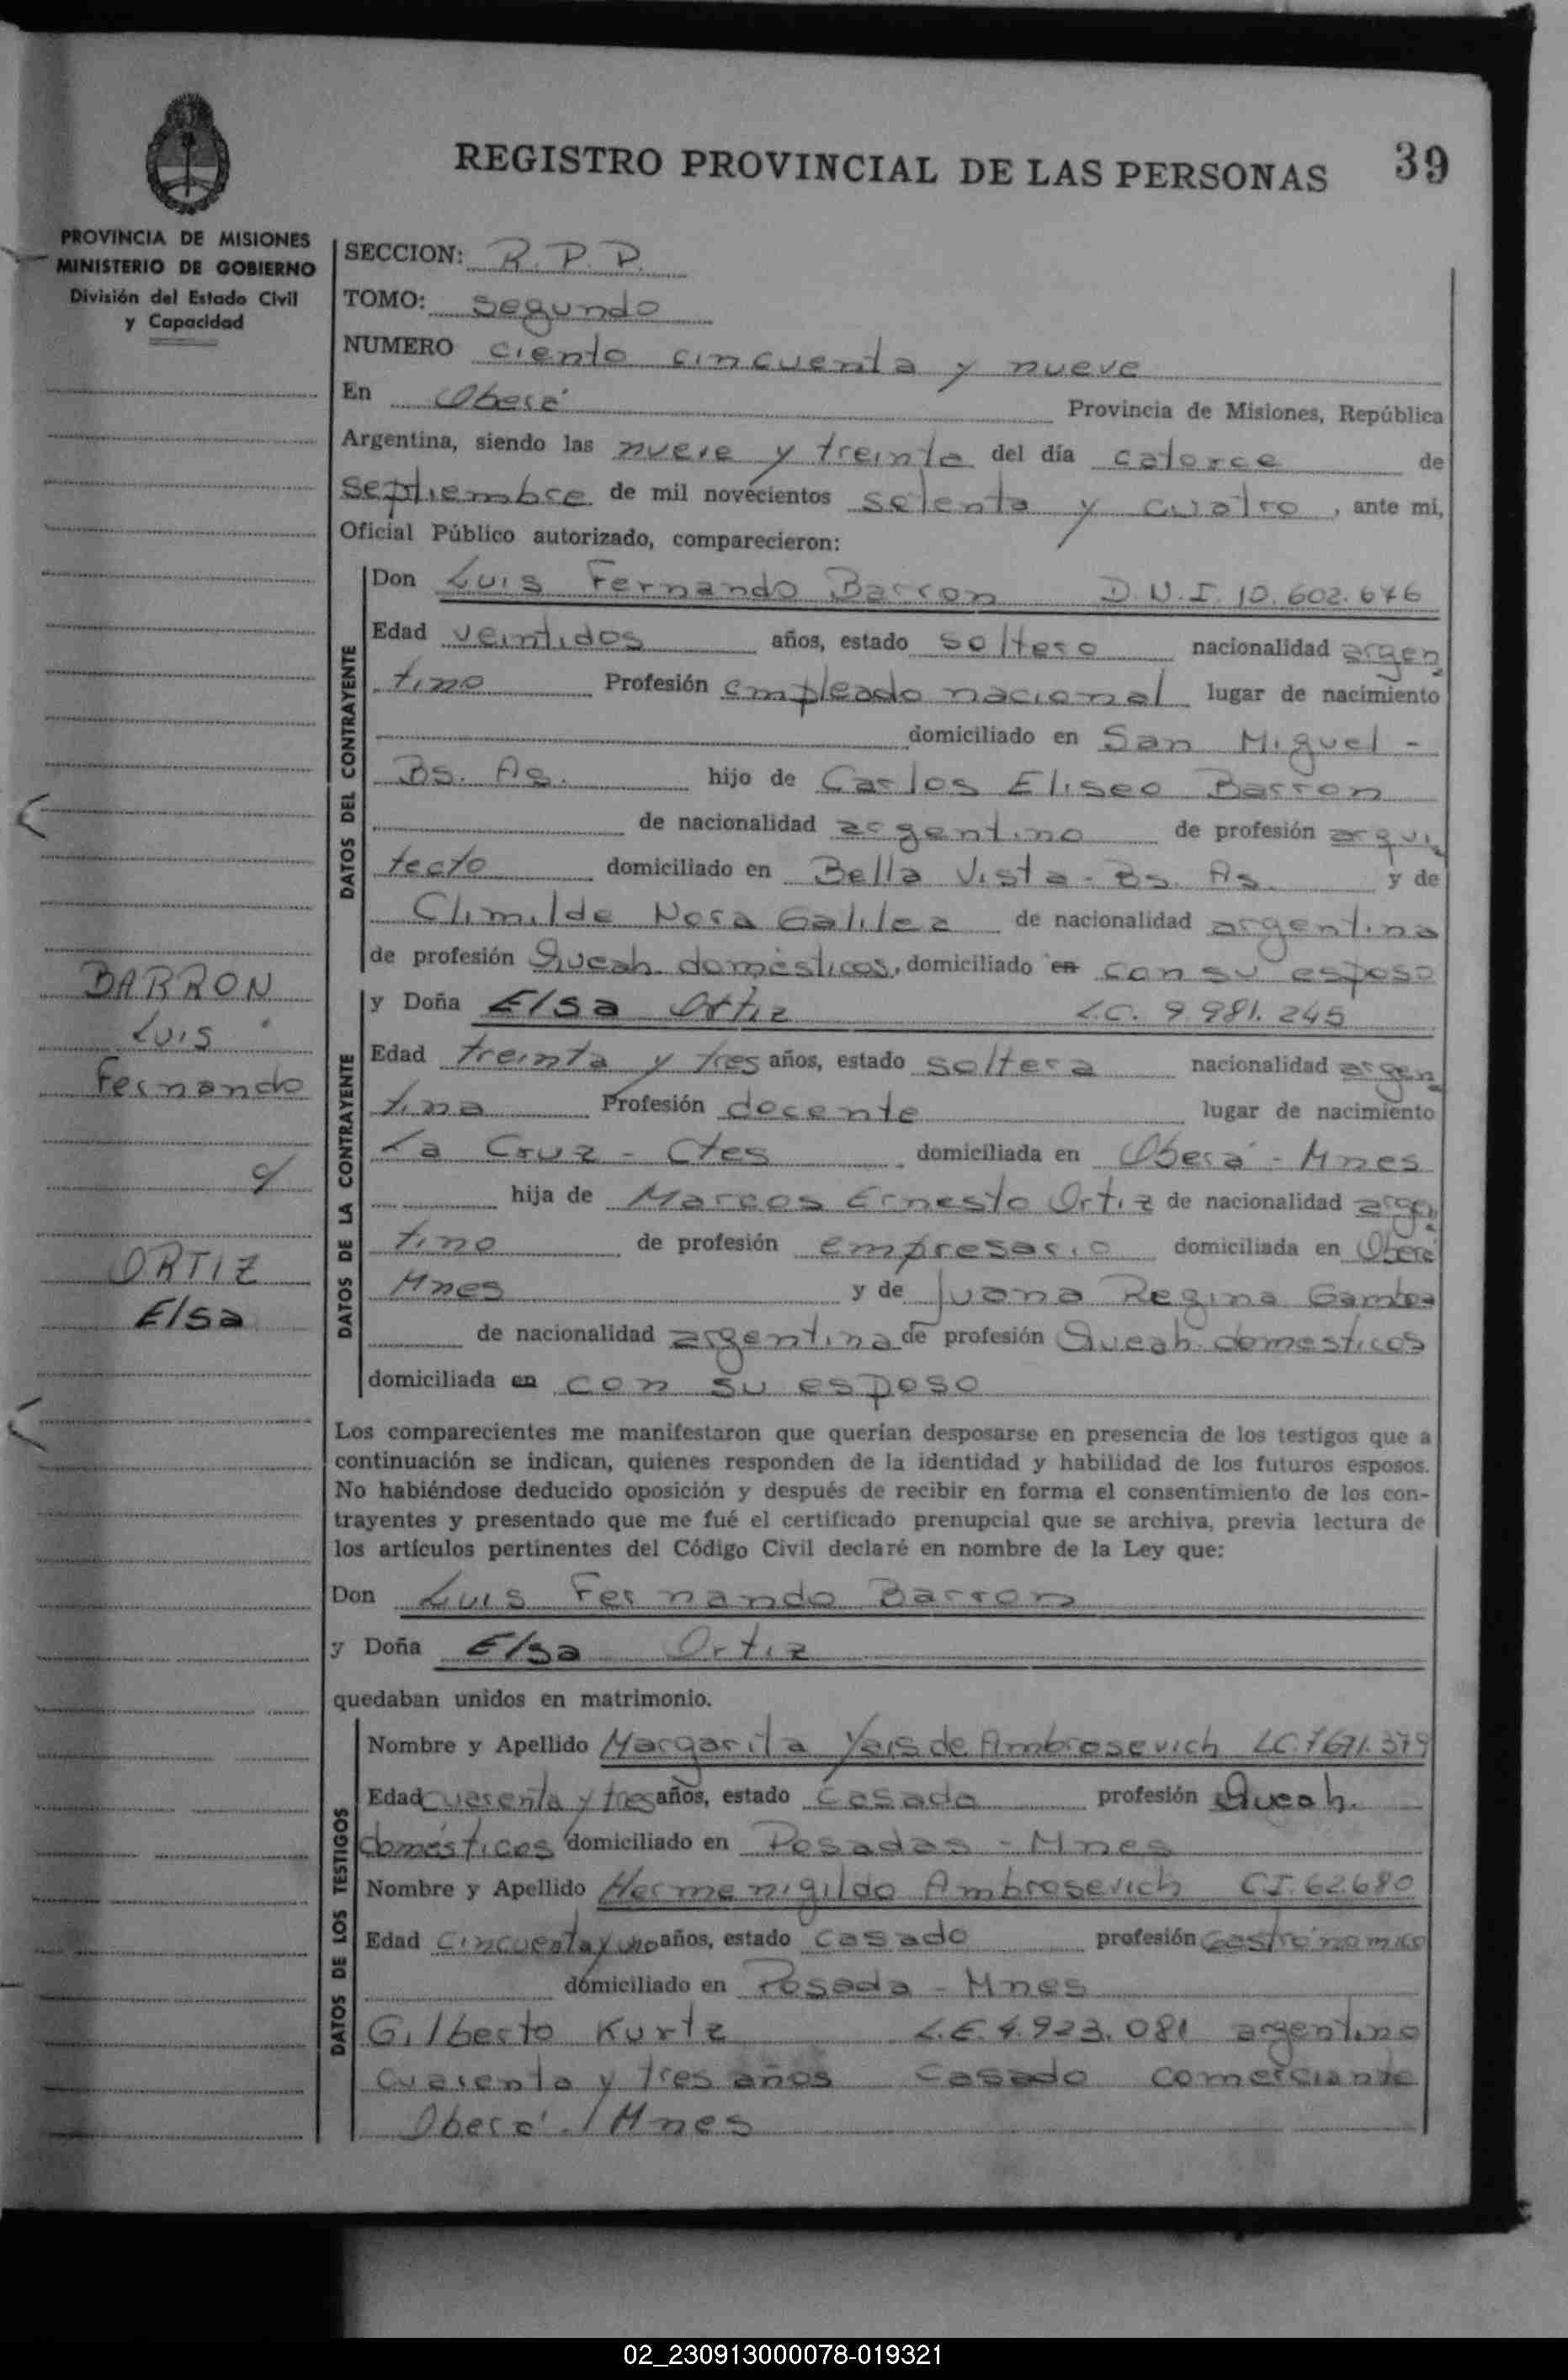 REGISTRO PROVINCIAL DE LAS PERSONAS 39
PROVINCIA DE MISIONES
MINISTERIO DE GOBIERNO
División del Estado Civil
y Capacidad
SECCION: R. P. P.
TOMO: segundo
NUMERO ciento cincuenta y nueve
En Oberá Provincia de Misiones, República
Argentina, siendo las nueve y treinta del día catorce de
septiembre de mil novecientos setenta y cuatro, ante mi,
Oficial Público autorizado, comparecieron:
DATOS DEL CONTRAYENTE
Don Luis Fernando Barron D.N.I. 10.602.676
Edad veintidos años, estado soltero nacionalidad argen
tino Profesión empleado nacional lugar de nacimiento
domiciliado en San Miguel -
Bs. As. hijo de Carlos Eliseo Barron
de nacionalidad argentino de profesión arqui
tecto domiciliado en Bella Vista - Bs. As. y de
Climilde Nora Galilea de nacionalidad argentina
de profesión Queah. domésticos, domiciliado en con su esposo
BARRON
Luis
Fernando
c/
ORTIZ
Elsa
DATOS DE LA CONTRAYENTE
y Doña Elsa Ortiz L.C. 9.981.245
Edad treinta y tres años, estado soltera nacionalidad argen
tina Profesión docente lugar de nacimiento
La Cruz - Ctes domiciliada en Oberá - Mnes
hija de Marcos Ernesto Ortiz de nacionalidad argen
tino de profesión empresario domiciliada en Oberá
Mnes y de Juana Regina Gamboa
de nacionalidad argentina de profesión Queah. domesticos
domiciliada en con su esposo
Los comparecientes me manifestaron que querían desposarse en presencia de los testigos que a
continuación se indican, quienes responden de la identidad y habilidad de los futuros esposos.
No habiéndose deducido oposición y después de recibir en forma el consentimiento de los con-
trayentes y presentado que me fué el certificado prenupcial que se archiva, previa lectura de
los artículos pertinentes del Código Civil declaré en nombre de la Ley que:
Don Luis Fernando Barron
y Doña Elsa Ortiz
quedaban unidos en matrimonio.
DATOS DE LOS TESTIGOS
Nombre y Apellido Margarita de Ambrosevich LC 7671.379
Edad cuarenta y tres años, estado casada profesión Queah.
domésticos domiciliado en Posadas - Mnes
Nombre y Apellido Hermenigildo Ambrosevich CI. 62680
Edad cincuenta y uno años, estado casado profesión Gastrónomico
domiciliado en Posada - Mnes
Gilberto Kurtz L.E. 4.923.081 argentino
cuarenta y tres años casado comerciante
Oberá / Mnes
02_230913000078-019321